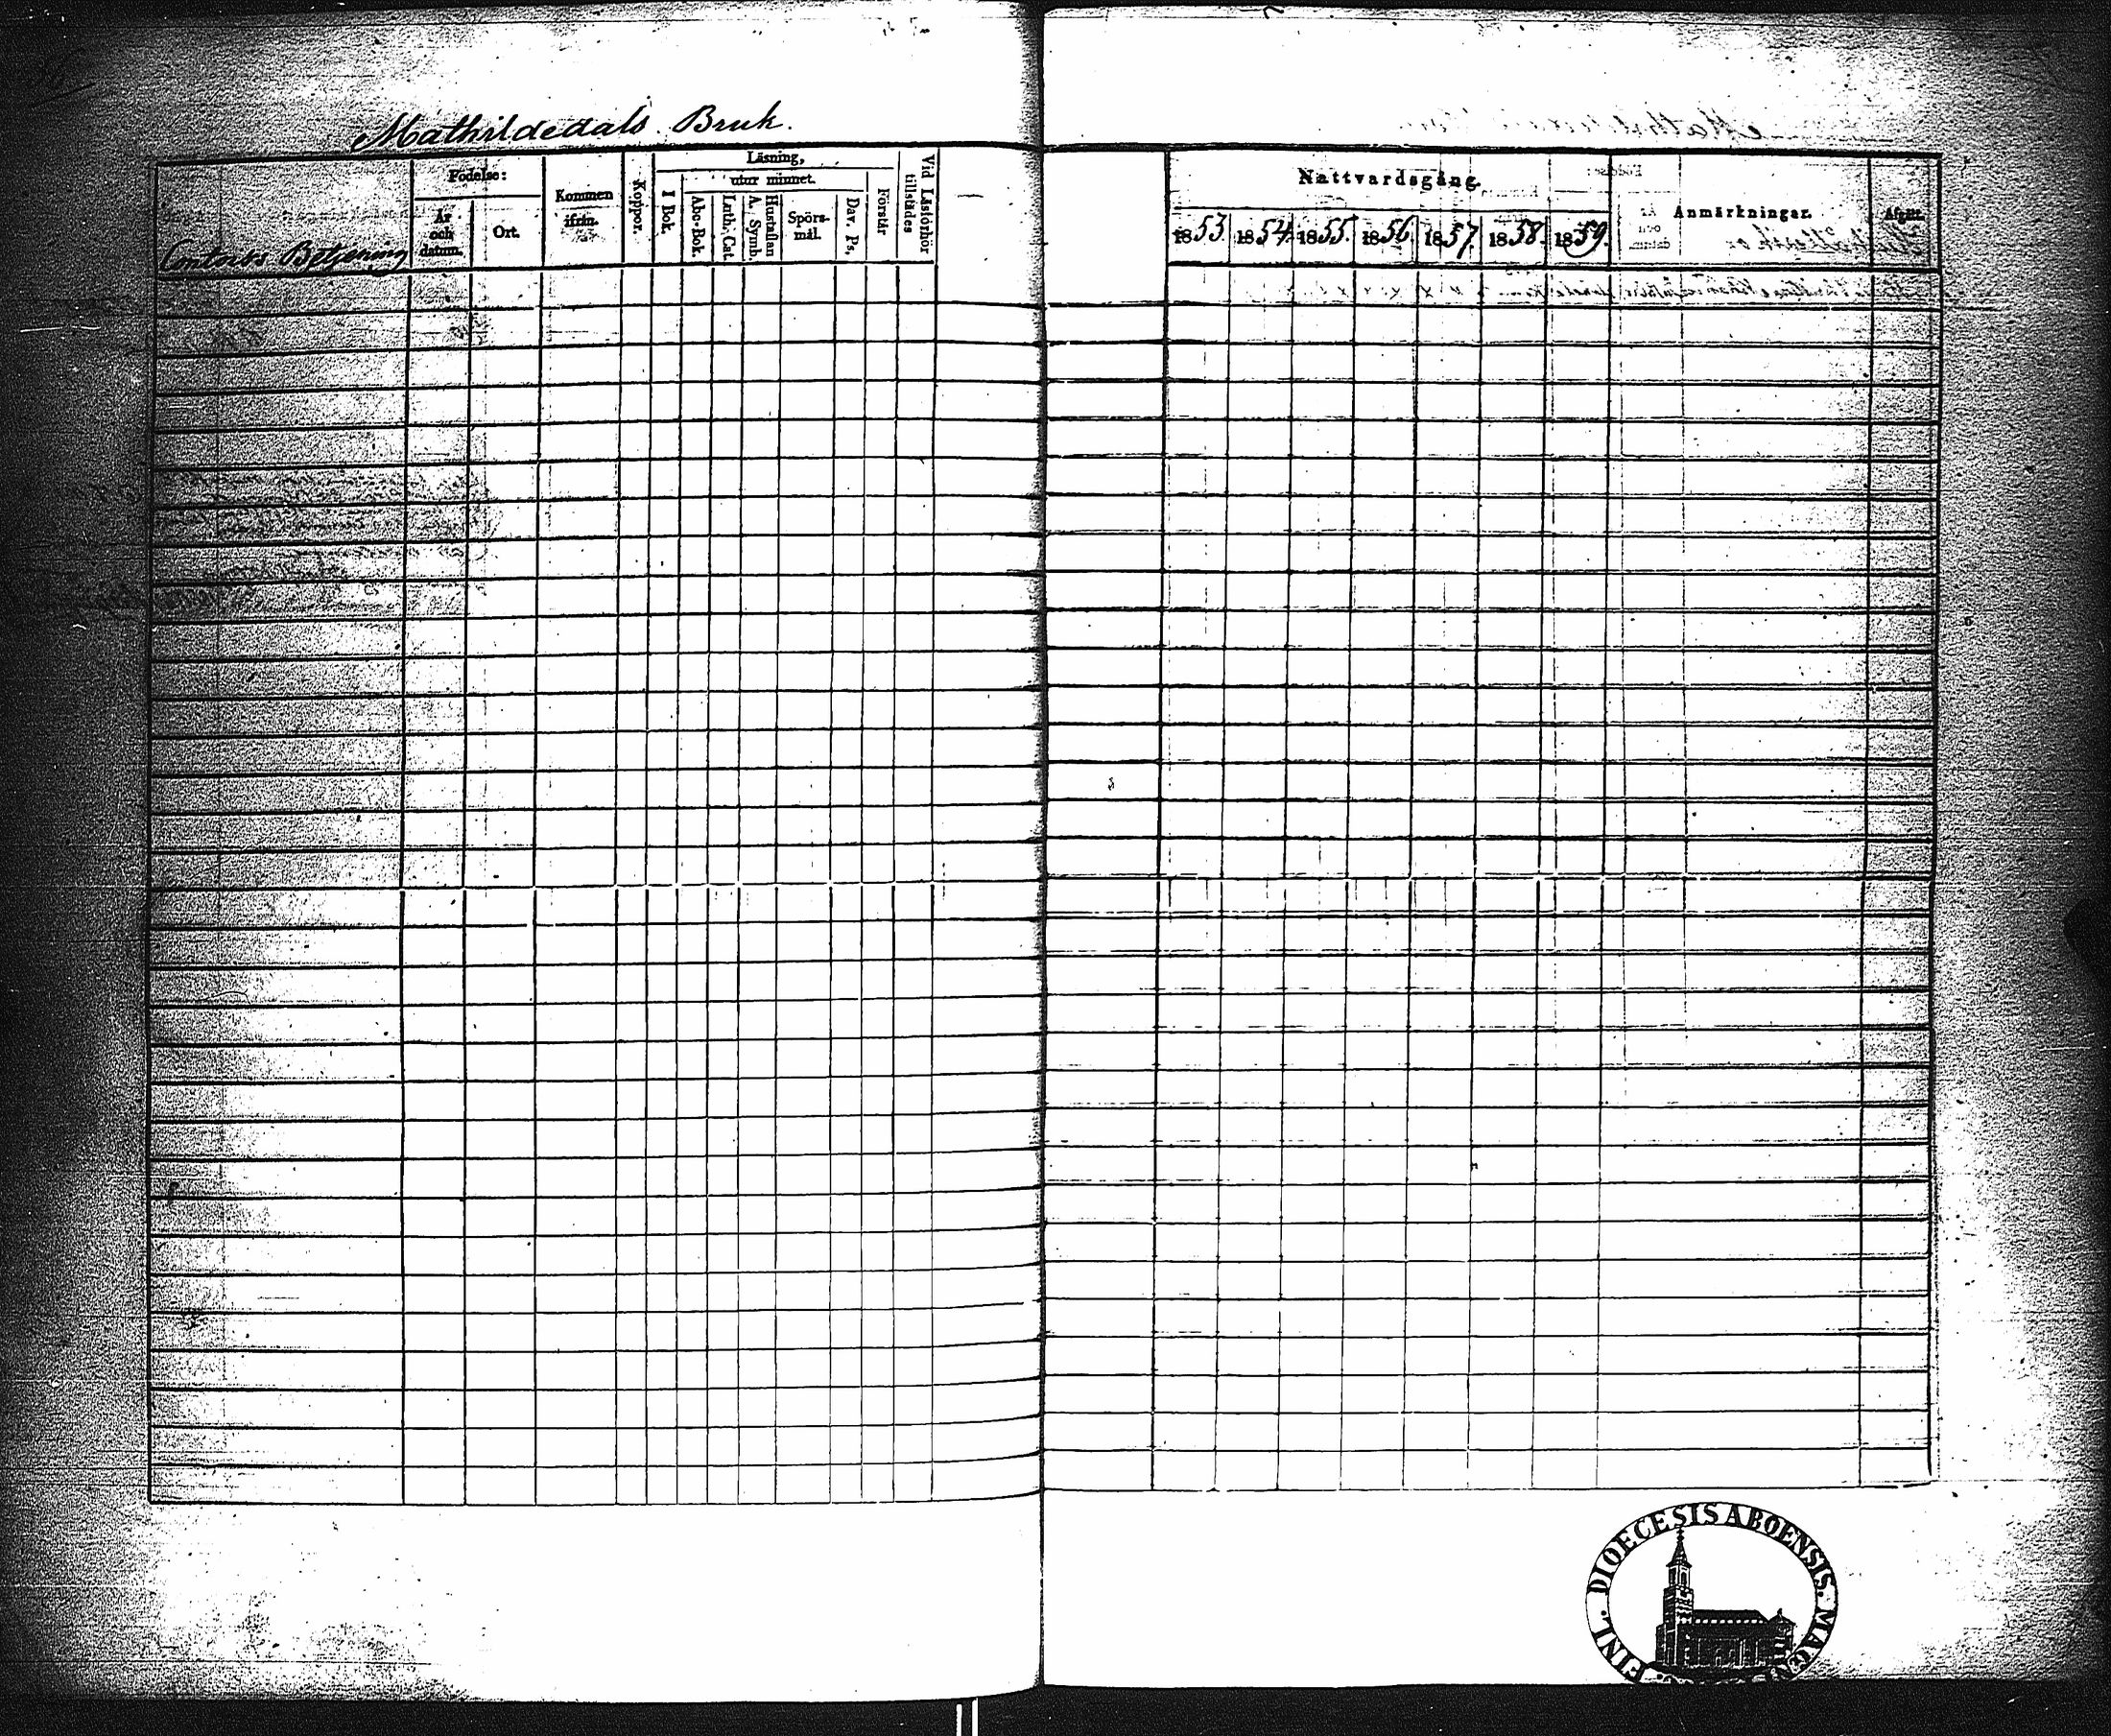 Mathildedals Bruk.
Contoirs Betjening
Födelse:
År och datum.
Ort.
Kommen ifrån.
Koppor.
Läsning,
utur minnet.
I Bok.
Abc-Bok.
Luth. Cat.
Hustaflan A. Symb.
Spörsmål.
Dav. Ps.
Förstår
Vid Läsförhör tillstädes
Nattvardsgång.
1853 1854. 1855. 1856. 1857. 1858. 1859.
Anmärkningar.
Afgått.
FINL. DIOECESIS ABOENSIS.